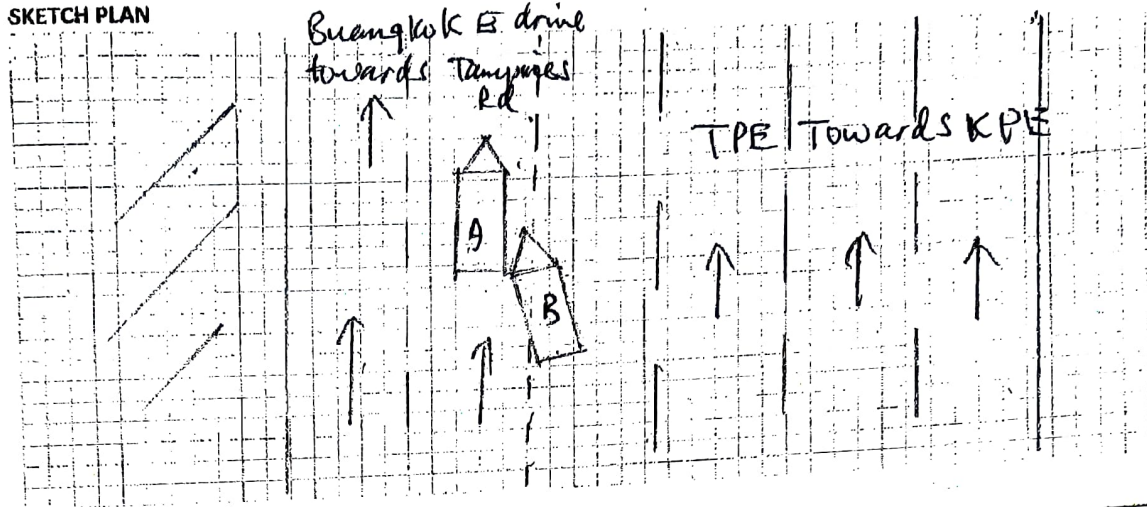 SKETCH PLAN
Buangkok E drive
towards Tampines
Rd
TPE Towards KPE
A
B